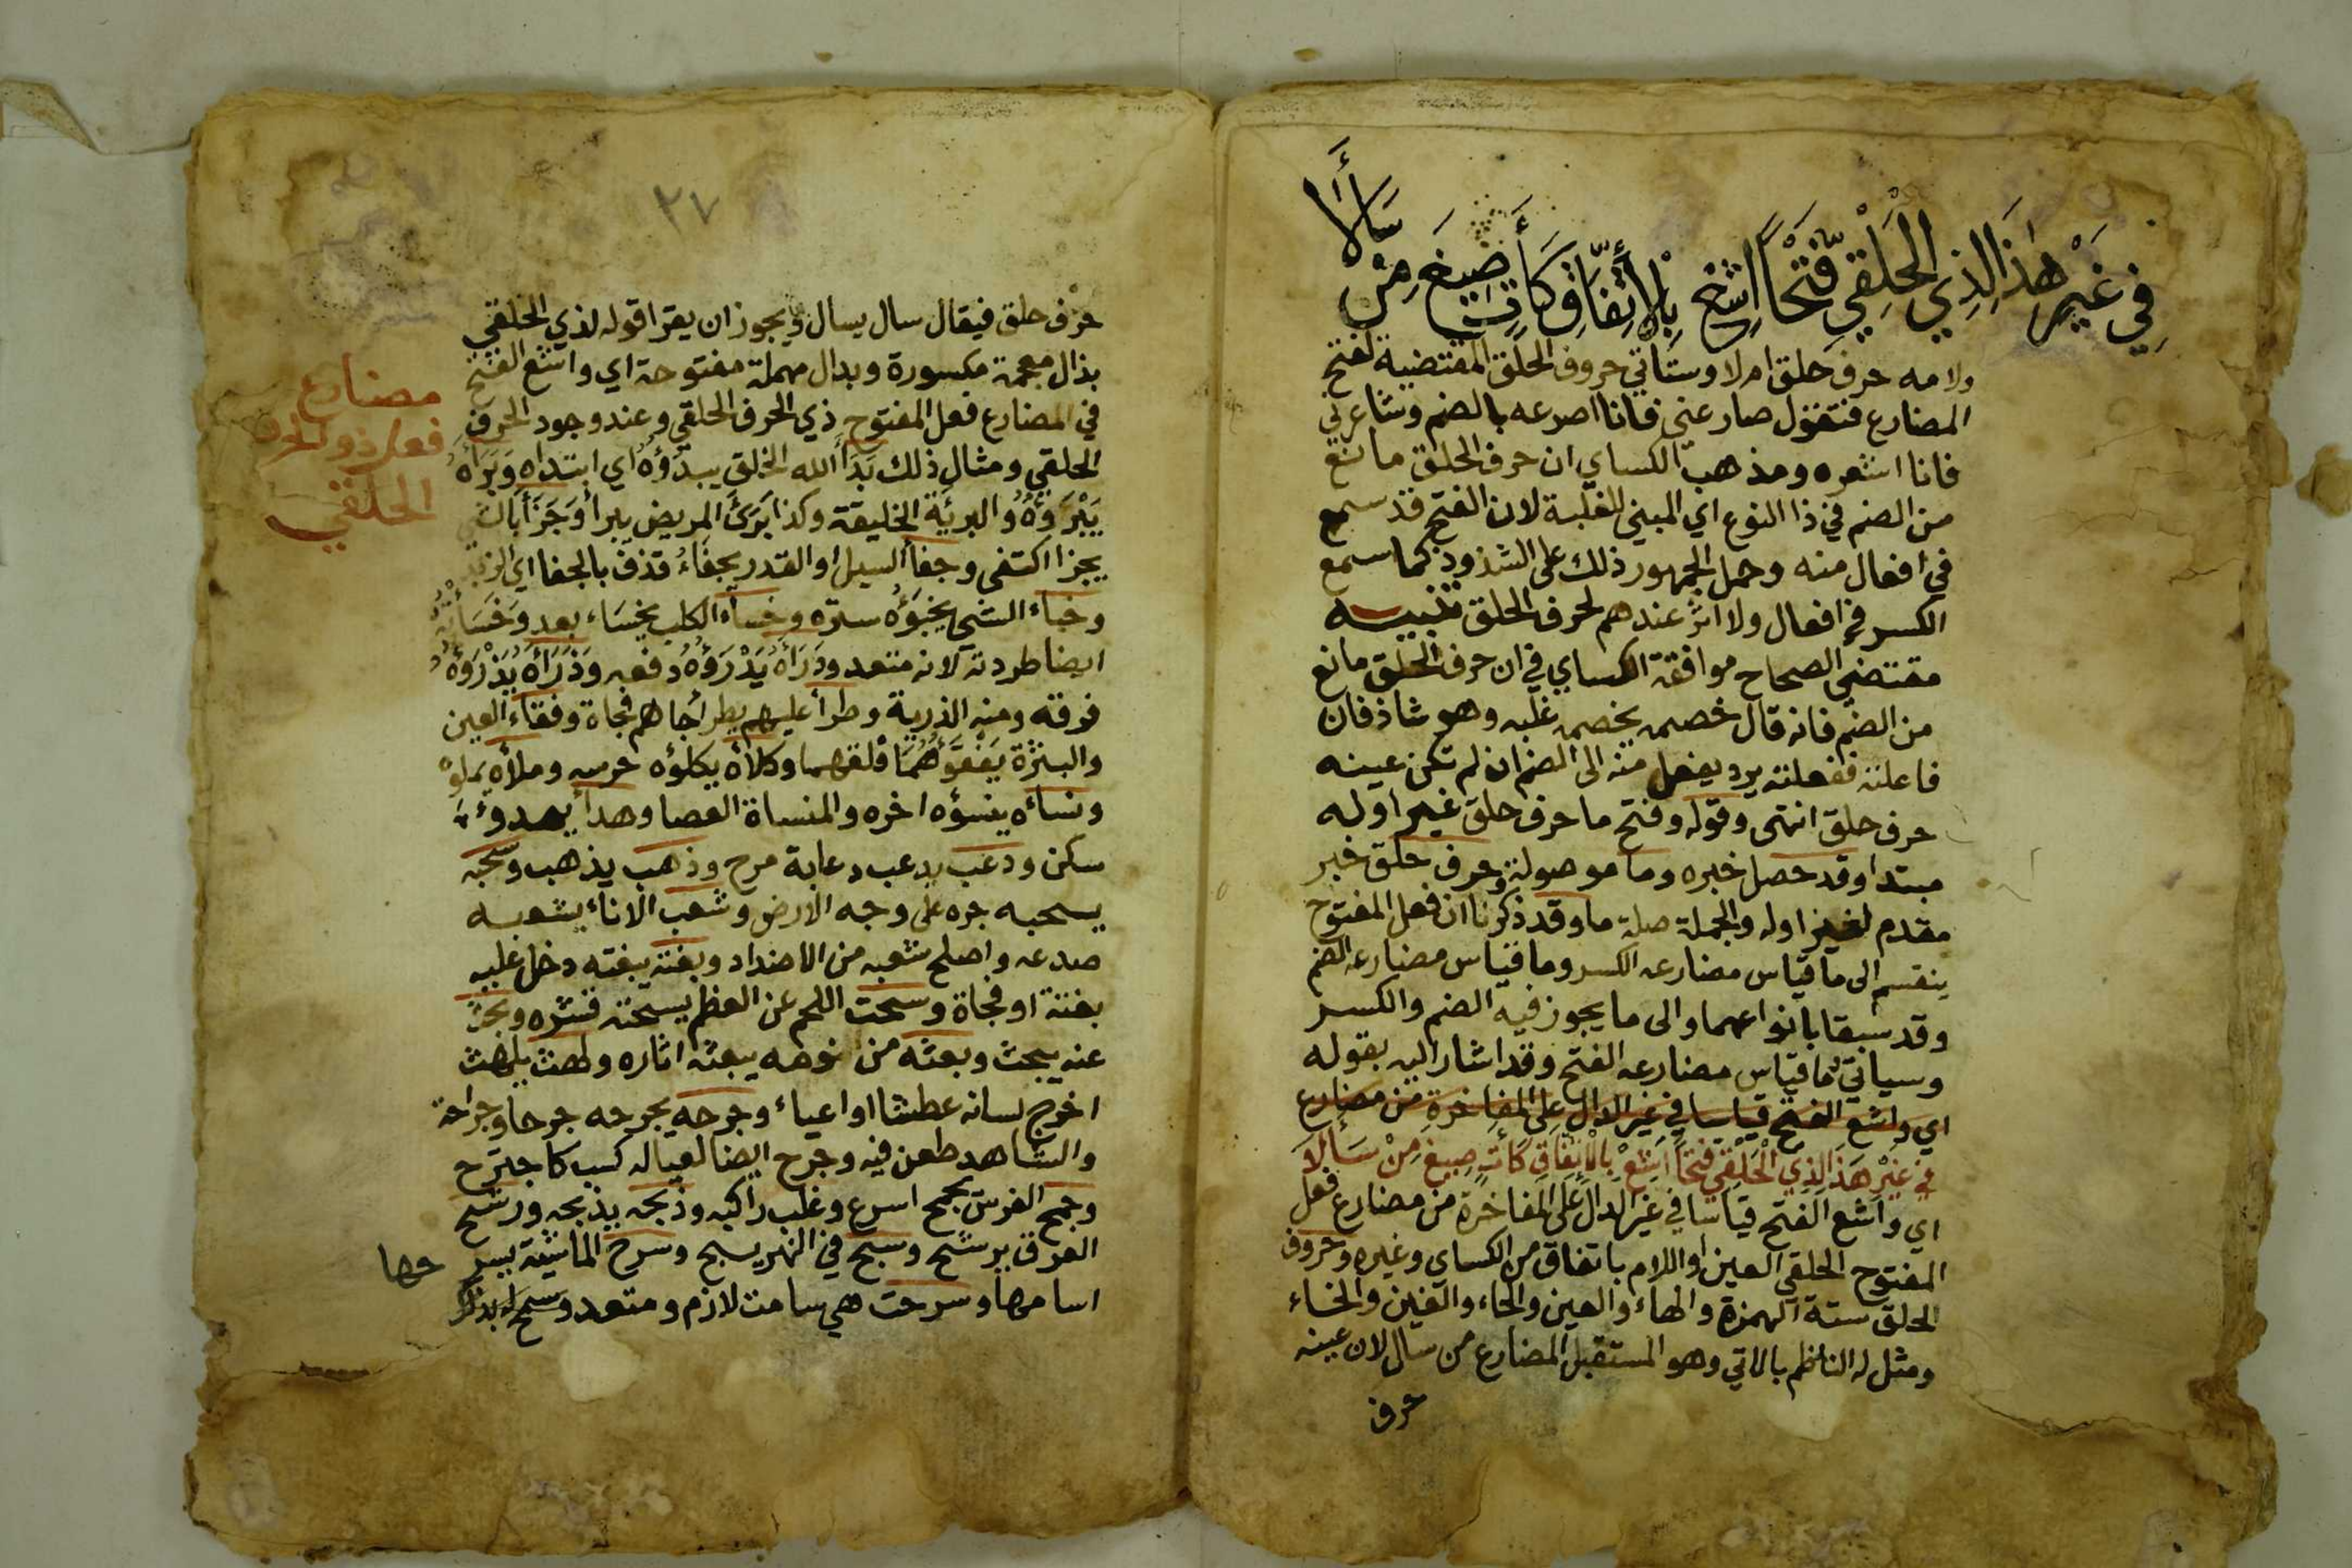 في غَيْرِ هَذَا لِذِي الحَلْقِيِّ فَتْحًا اشِعْ بِالاِتِّفَاقِ كَآتٍ صِيغَ مِنْ سَأَلَا
ولامه حرف حلق ام لا وستاتي حروف الحلق المقتضية لفتح
المضارع فتقول صارعني فانا اصرعه بالضم وشاعرني
فانا اشعره ومذهب الكساي ان حرف الحلق مانع
من الضم في ذا النوع اي المبني للغلبة لان الفتح قد سمع
في افعال منه وحمل الجمهور ذلك على الشذوذ كما سمع
الكسر في افعال ولا اثر عندهم لحرف الحلق تنبيه
مقتضى الصحاح موافقة الكساي في ان حرف الحلق مانع
من الضم فانه قال خصمه يخصمه غلبه وهو شاذ فان
فاعلته ففعلته يرد يفعل منه الى الضم ان لم تكن عينه
حرف حلق انتهى وقوله وفتح ما حرف حلق غير اوله
مبتدا وقد حصل خبره وما موصولة وحرف حلق خبر
مقدم لغير اوله والجملة صلة ما وقد ذكرنا ان فعل المفتوح
ينقسم الى ما قياس مضارعه الكسر وما قياس مضارعه الضم
وقد سبقا بانواعهما والى ما يجوز فيه الضم والكسر
وسياتي ما قياس مضارعه الفتح وقد اشار اليه بقوله
اي واشع الفتح قياسا في غير الدال على المفاخرة من مضارع
في غَيْرِ هَذَا لِذِي الْحَلْقِي فَتْحًا اشِعْ بِالاِتِّفَاقِ كَآتٍ صِيغَ مِنْ سَأَلَا
اي واشع الفتح قياسا في غير الدال على المفاخرة من مضارع فعل
المفتوح الحلقي العين او اللام باتفاق من الكساي وغيره وحروف
الحلق ستة الهمزة والهاء والعين والحاء والغين والخاء
ومثل له الناظم بالاتي وهو المستقبل المضارع من سال لان عينه
حرف
٢٧
حرف حلق فيقال سال يسال ويجوز ان يقرا قوله لذي الحلقي
بذال معجمة مكسورة وبدال مهملة مفتوحة اي واشع الفتح
في المضارع فعل المفتوح ذي الحرف الحلقي وعند وجود الحرف
الحلقي ومثال ذلك بَدَأَ الله الخلق يبدَؤُه اي ابتداه وَبَرَأَهُ
يَبْرَؤُهُ والبريَّة الخليقة وكذا بَرَئَ المريض يبرأ وَجَزَأَ بالشي
يجزا اكتفى وجفأ السيل او القدر يجفَاءُ قذف بالجفا اي الزبد
وخباء الشي يخبَؤُه ستره وخساء الكلب يخسَاء بعد وَخَسَأتُهُ
ايضا طردته لانه متعد ودَرَأَهُ يَدْرَؤُهُ دفعه وَذَرَأَهُ يَذْرَؤُهُ
فرقه ومنه الذرية وطرأ عليهم يطرأ جاهم فجاة وفقاء العين
والبثرة يَفْقَؤُهُمَا فلقهما وكلأه يكلؤه حرسه وملأه يملؤه
ونسأه ينسؤه اخره والمنساة العصا وهدأ يهدؤ
سكن ودعب يدعب دعابة مزح وذهب يذهب وسحبه
يسحبه جره على وجه الارض وشعب الاناء يشعبه
صدعه واصلح شعبه من الاضداد وبغته يبغته دخل عليه
بغتة او فجاة وسحت اللحم عن العظم يسحته قشره وبحث
عنه يبحث وبعثه من نومه يبعثه اثاره ولهث يلهث
اخرج لسانه عطشا او اعياء وجرحه يجرحه جرحا وجراحة
والشاهد طعن فيه وجرح ايضا لعياله كسب كاجترح
وجمح الفرس يجمح اسرع وغلب راكبه وذبحه يذبحه ورشح
العرق يرشح وسبح في النهر يسبح وسرح الماشية يسر
حها
اسامها وسرحت هي سامت لازم ومتعد وسمح له بذكر
مضارع
فعل ذو الحرف
الحلقي